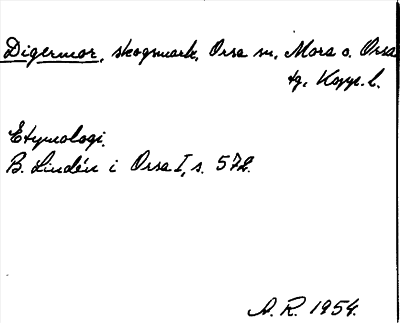 Digermor, skogsmark, Orsa sn, Mora o. Orsa
tg, Kopp. l.
Etymologi.
B. Lindén i Orsa I, s. 572.
A. R. 1954.